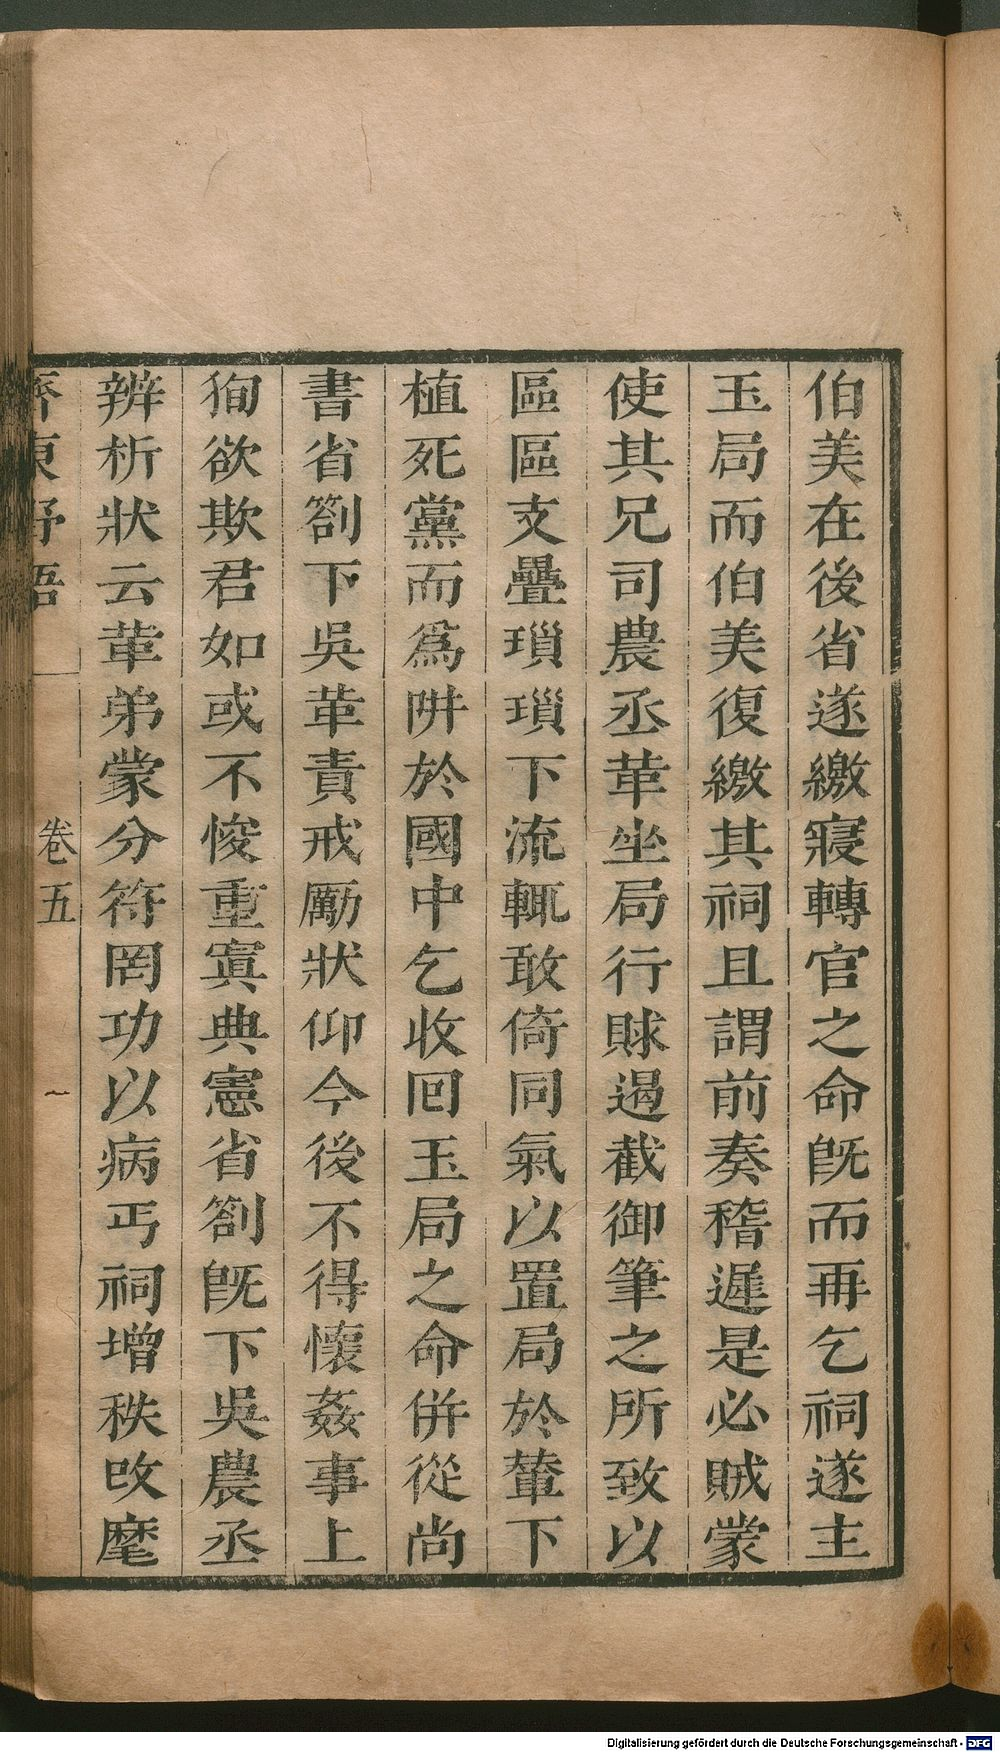 伯美在後省遂繳寢轉官之命旣而再乞祠遂主
玉局而伯美復繳其祠且謂前奏稽遲是必賊蒙
使其兄司農丞革坐局行賕遏截御筆之所致以
區區支疊瑣瑣下流輒敢倚同氣以置局於輦下
植死黨而爲阱於國中乞收回玉局之命併從尚
書省劄下吳革責戒厲狀仰今後不得懷姦事上
狥欲欺君如或不悛重寘典憲省劄旣下吳農丞
辨析狀云革弟蒙分符罔功以病丐祠增秩攺麾
齊東野語 卷五 一
Digitalisierung gefördert durch die Deutsche Forschungsgemeinschaft - DFG